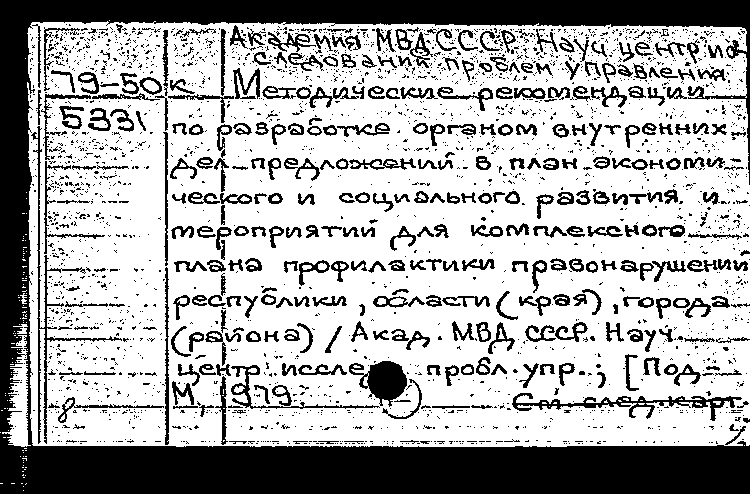 Академия МВД СССР. Науч центр ис-
следования проблем управления
79-50к Методические рекомендации
5331 по разработке органом внутренних
дел предложений в план экономи-
ческого и социального развития и
мероприятий для комплексного
плана профилактики правонарушений
республики, области (края), города
(района) / Акад. МВД СССР. Науч.
центр иссле пробл. упр.; [Под-
М, 1979.
См. след. карт.
8